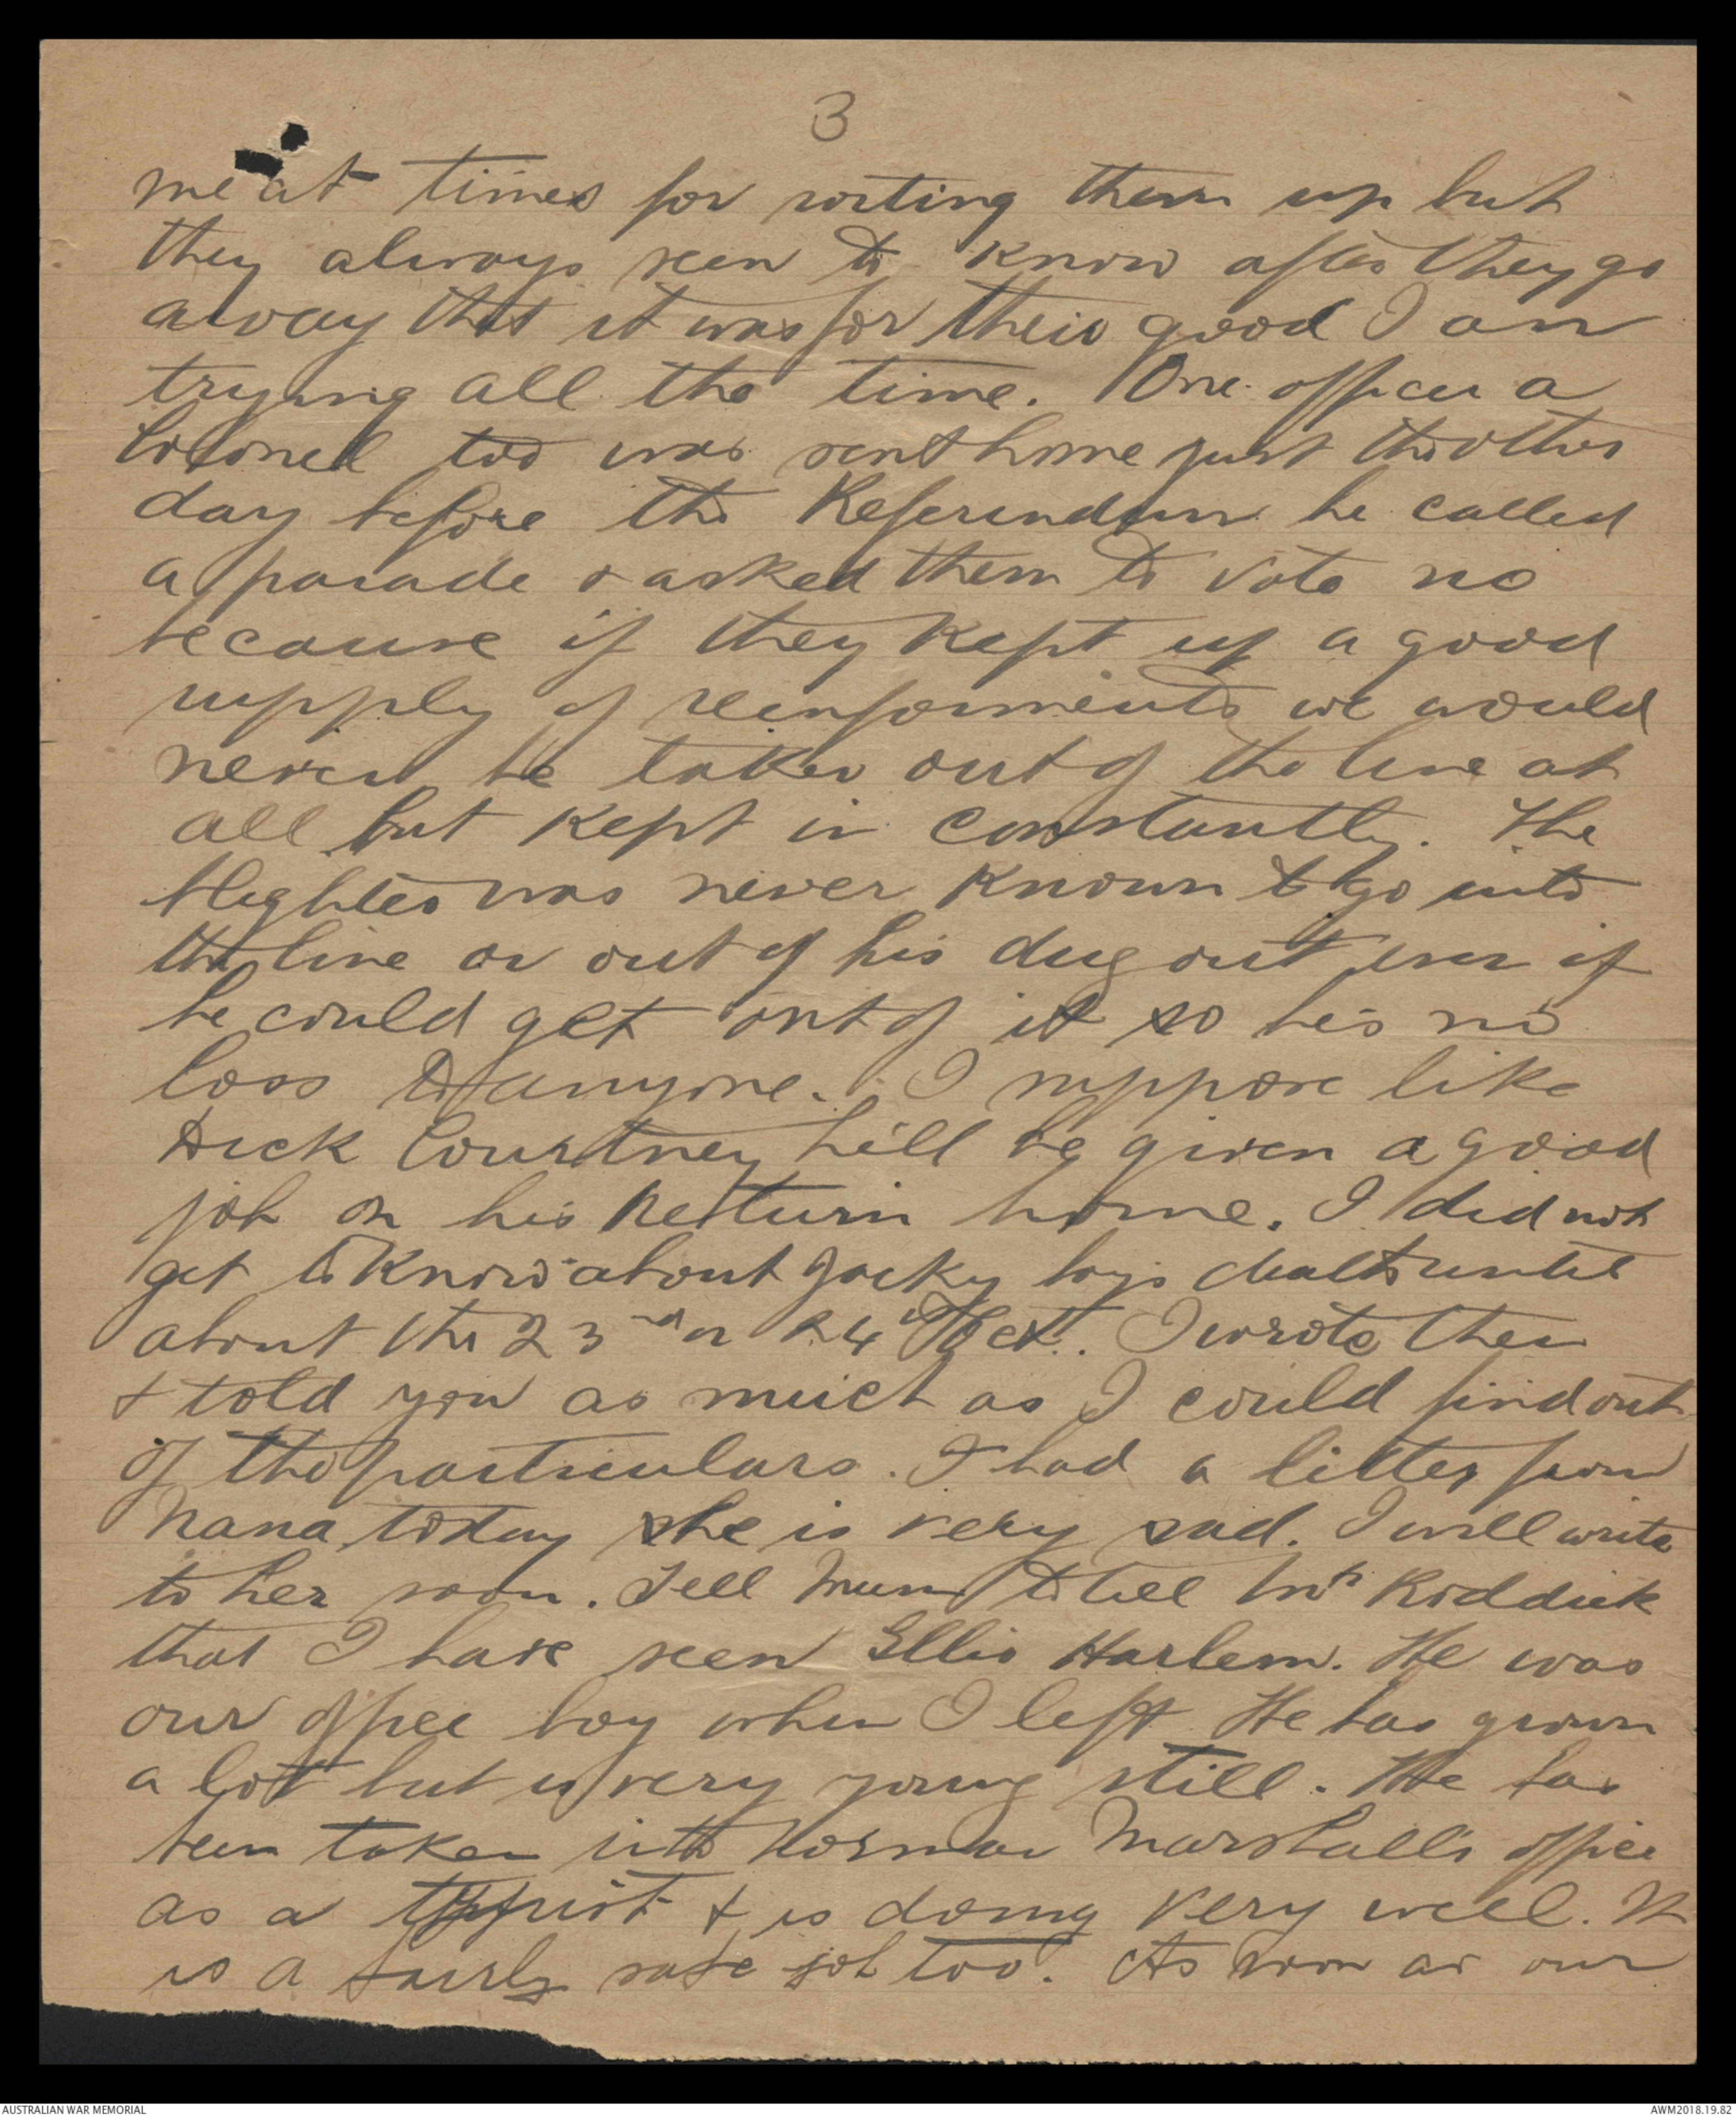 3
me at times for roting them up but
they always seem to know after they go
away that it was for their good I am
trying all the time. One officer a
Colonel too was sent home just the other
day before the Referendum he called
a parade & asked them to vote no
because if they kept up a good
supply of reinforments we would
never be taken out of the line at
all but kept in constantly. The
blighter was never known to go into
the line or out of his dug out even if
he could get out of it so he's no
loss to anyone. I suppose like
Dick Courtney he'll be given a good
job on his return home. I did not
get to know about Jacky boys death until
about the 23rd or 24th Oct. I wrote then
& told you as much as I could find out
of the particulars. I had a letter from
Nana today she is very sad. I will write
to her soon. Tell Mum to tell Mrs Riddick
that I have seen Ellis Harlem. He was
our office boy when I left He has grown
a lot but is very young still. He has
been taken into Norman Marshall's office
as a typist & is doing very well. It
is a fairly safe job too. As soon as our
AUSTRALIAN WAR MEMORIAL
AWM2018.19.82